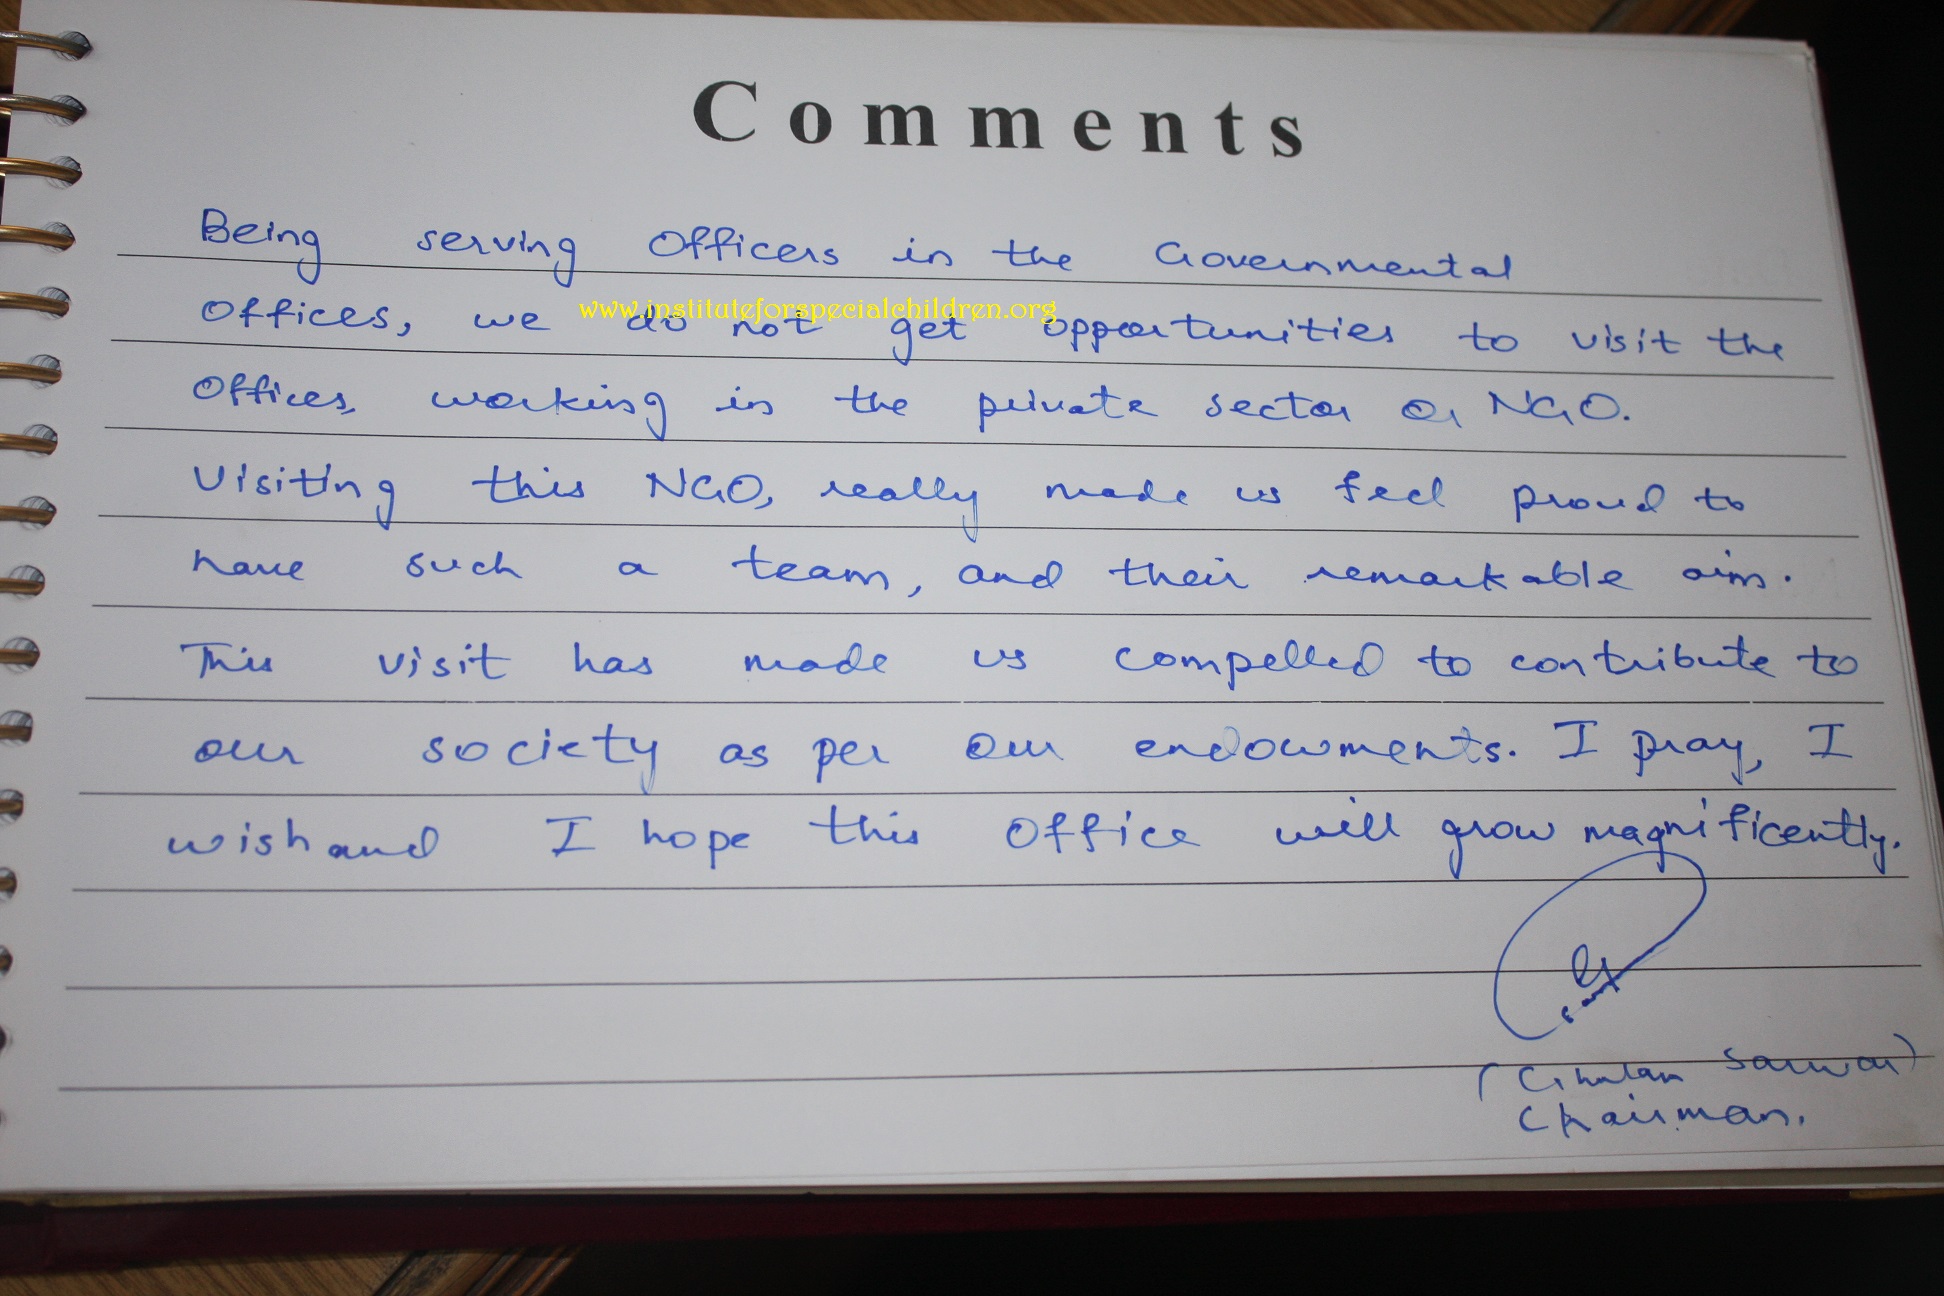 Comments
Being serving Officers in the Governmental
www.instituteforspecialchildren.org
Offices, we do not get opportunities to visit the
Offices, working in the private sector or NGO.
Visiting this NGO, really made us feel proud to
have such a team, and their remarkable aim.
This visit has made us compelled to contribute to
our society as per our endowments. I pray, I
wish and I hope this Office will grow magnificently.
(Ghulam Sarwar)
Chairman.